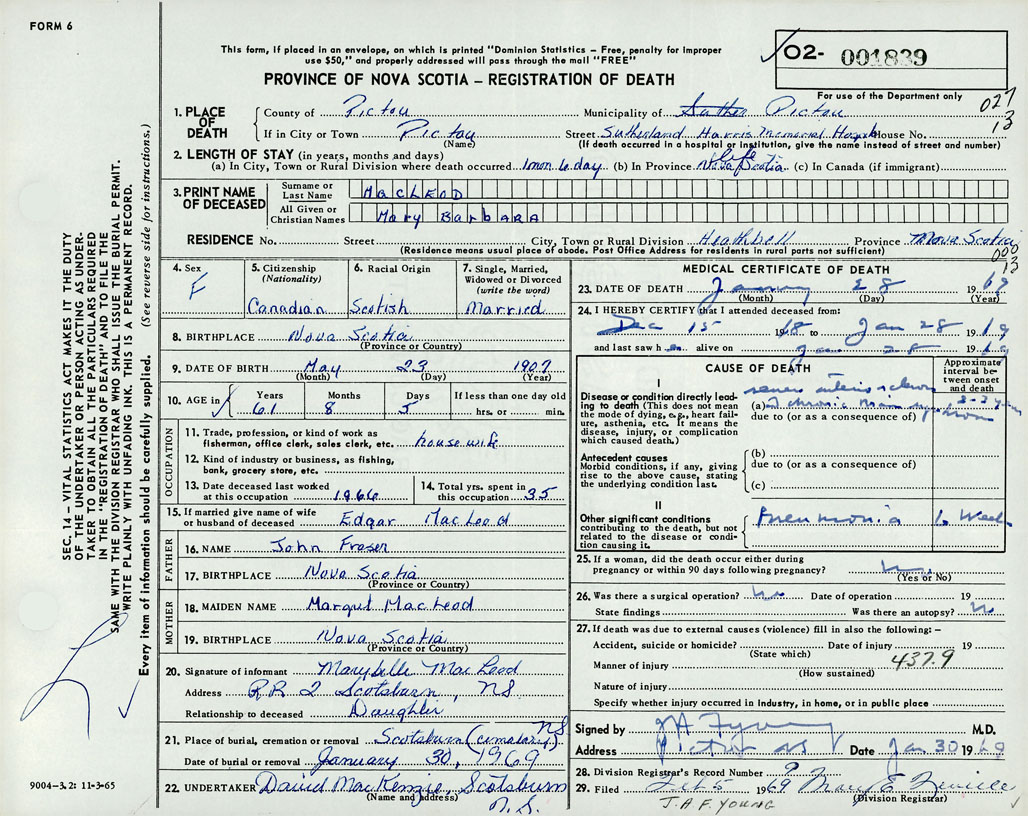 FORM 6
This form, if placed in an envelope, on which is printed "Dominion Statistics – Free, penalty for improper
use $50," and properly addressed will pass through the mail "FREE"
PROVINCE OF NOVA SCOTIA – REGISTRATION OF DEATH
02- 001839
For use of the Department only
027
13
1. PLACE OF DEATH
County of Pictou Municipality of Pictou
If in City or Town Pictou Street Sutherland Harris Memorial Hospt House No.
(Name) (If death occurred in a hospital or institution, give the name instead of street and number)
2. LENGTH OF STAY (in years, months and days)
(a) In City, Town or Rural Division where death occurred 1 mon 6 day (b) In Province life Nova Scotia (c) In Canada (if immigrant)
3. PRINT NAME OF DECEASED
Surname or Last Name MacLeod
All Given or Christian Names Mary Barbara
RESIDENCE No. Street City, Town or Rural Division Heathbell Province Nova Scotia
(Residence means usual place of abode. Post Office Address for residents in rural parts not sufficient)
000
13
4. Sex F
5. Citizenship (Nationality) Canadian
6. Racial Origin Scotish
7. Single, Married, Widowed or Divorced (write the word) Married
8. BIRTHPLACE Nova Scotia
(Province or Country)
9. DATE OF BIRTH May 23 1907
(Month) (Day) (Year)
10. AGE in Years 61 Months 8 Days 5 If less than one day old hrs. or min.
OCCUPATION
11. Trade, profession, or kind of work as fisherman, office clerk, sales clerk, etc. housewife
12. Kind of industry or business, as fishing, bank, grocery store, etc.
13. Date deceased last worked at this occupation 1966
14. Total yrs. spent in this occupation 35
15. If married give name of wife or husband of deceased Edgar MacLeod
FATHER
16. NAME John Fraser
17. BIRTHPLACE Nova Scotia
(Province or Country)
MOTHER
18. MAIDEN NAME Margret MacLeod
19. BIRTHPLACE Nova Scotia
(Province or Country)
20. Signature of informant Marybelle MacLeod
Address RR 2 Scotsburn, NS
Relationship to deceased Daughter
21. Place of burial, cremation or removal Scotsburn (cematary) NS
Date of burial or removal January 30, 1969
22. UNDERTAKER David MacKenzie, Scotsburn N.S.
(Name and address)
MEDICAL CERTIFICATE OF DEATH
23. DATE OF DEATH January 28 1969
(Month) (Day) (Year)
24. I HEREBY CERTIFY that I attended deceased from:
Dec 15 1968 to Jan 28 1969
and last saw her alive on Jan 28 1969
CAUSE OF DEATH
Approximate interval between onset and death
I
Disease or condition directly leading to death (This does not mean the mode of dying, e.g., heart failure, asthenia, etc. It means the disease, injury, or complication which caused death.)
severe arterio sclerosis
(a) chronic brain syndrome 2-3 years
due to (or as a consequence of)
Antecedent causes
Morbid conditions, if any, giving rise to the above cause, stating the underlying condition last.
(b)
due to (or as a consequence of)
(c)
II
Other significant conditions contributing to the death, but not related to the disease or condition causing it.
Pneumonia 6 weeks
25. If a woman, did the death occur either during pregnancy or within 90 days following pregnancy? No
(Yes or No)
26. Was there a surgical operation? No Date of operation 19
State findings Was there an autopsy? No
27. If death was due to external causes (violence) fill in also the following: –
Accident, suicide or homicide? Date of injury 19
(State which)
Manner of injury 437.9
(How sustained)
Nature of injury
Specify whether injury occurred in industry, in home, or in public place
Signed by J A F Young M.D.
Address Pictou NS Date Jan 30 1969
28. Division Registrar's Record Number 9
29. Filed Feb 5 1969 Mary E
(Division Registrar)
J. A. F. YOUNG
9004-3.2: 11-3-65
SEC. 14 – VITAL STATISTICS ACT MAKES IT THE DUTY
OF THE UNDERTAKER OR PERSON ACTING AS UNDER-
TAKER TO OBTAIN ALL THE PARTICULARS REQUIRED
IN THE "REGISTRATION OF DEATH" AND TO FILE THE
SAME WITH THE DIVISION REGISTRAR WHO SHALL ISSUE THE BURIAL PERMIT.
WRITE PLAINLY WITH UNFADING INK. THIS IS A PERMANENT RECORD.
Every item of information should be carefully supplied. (See reverse side for instructions.)